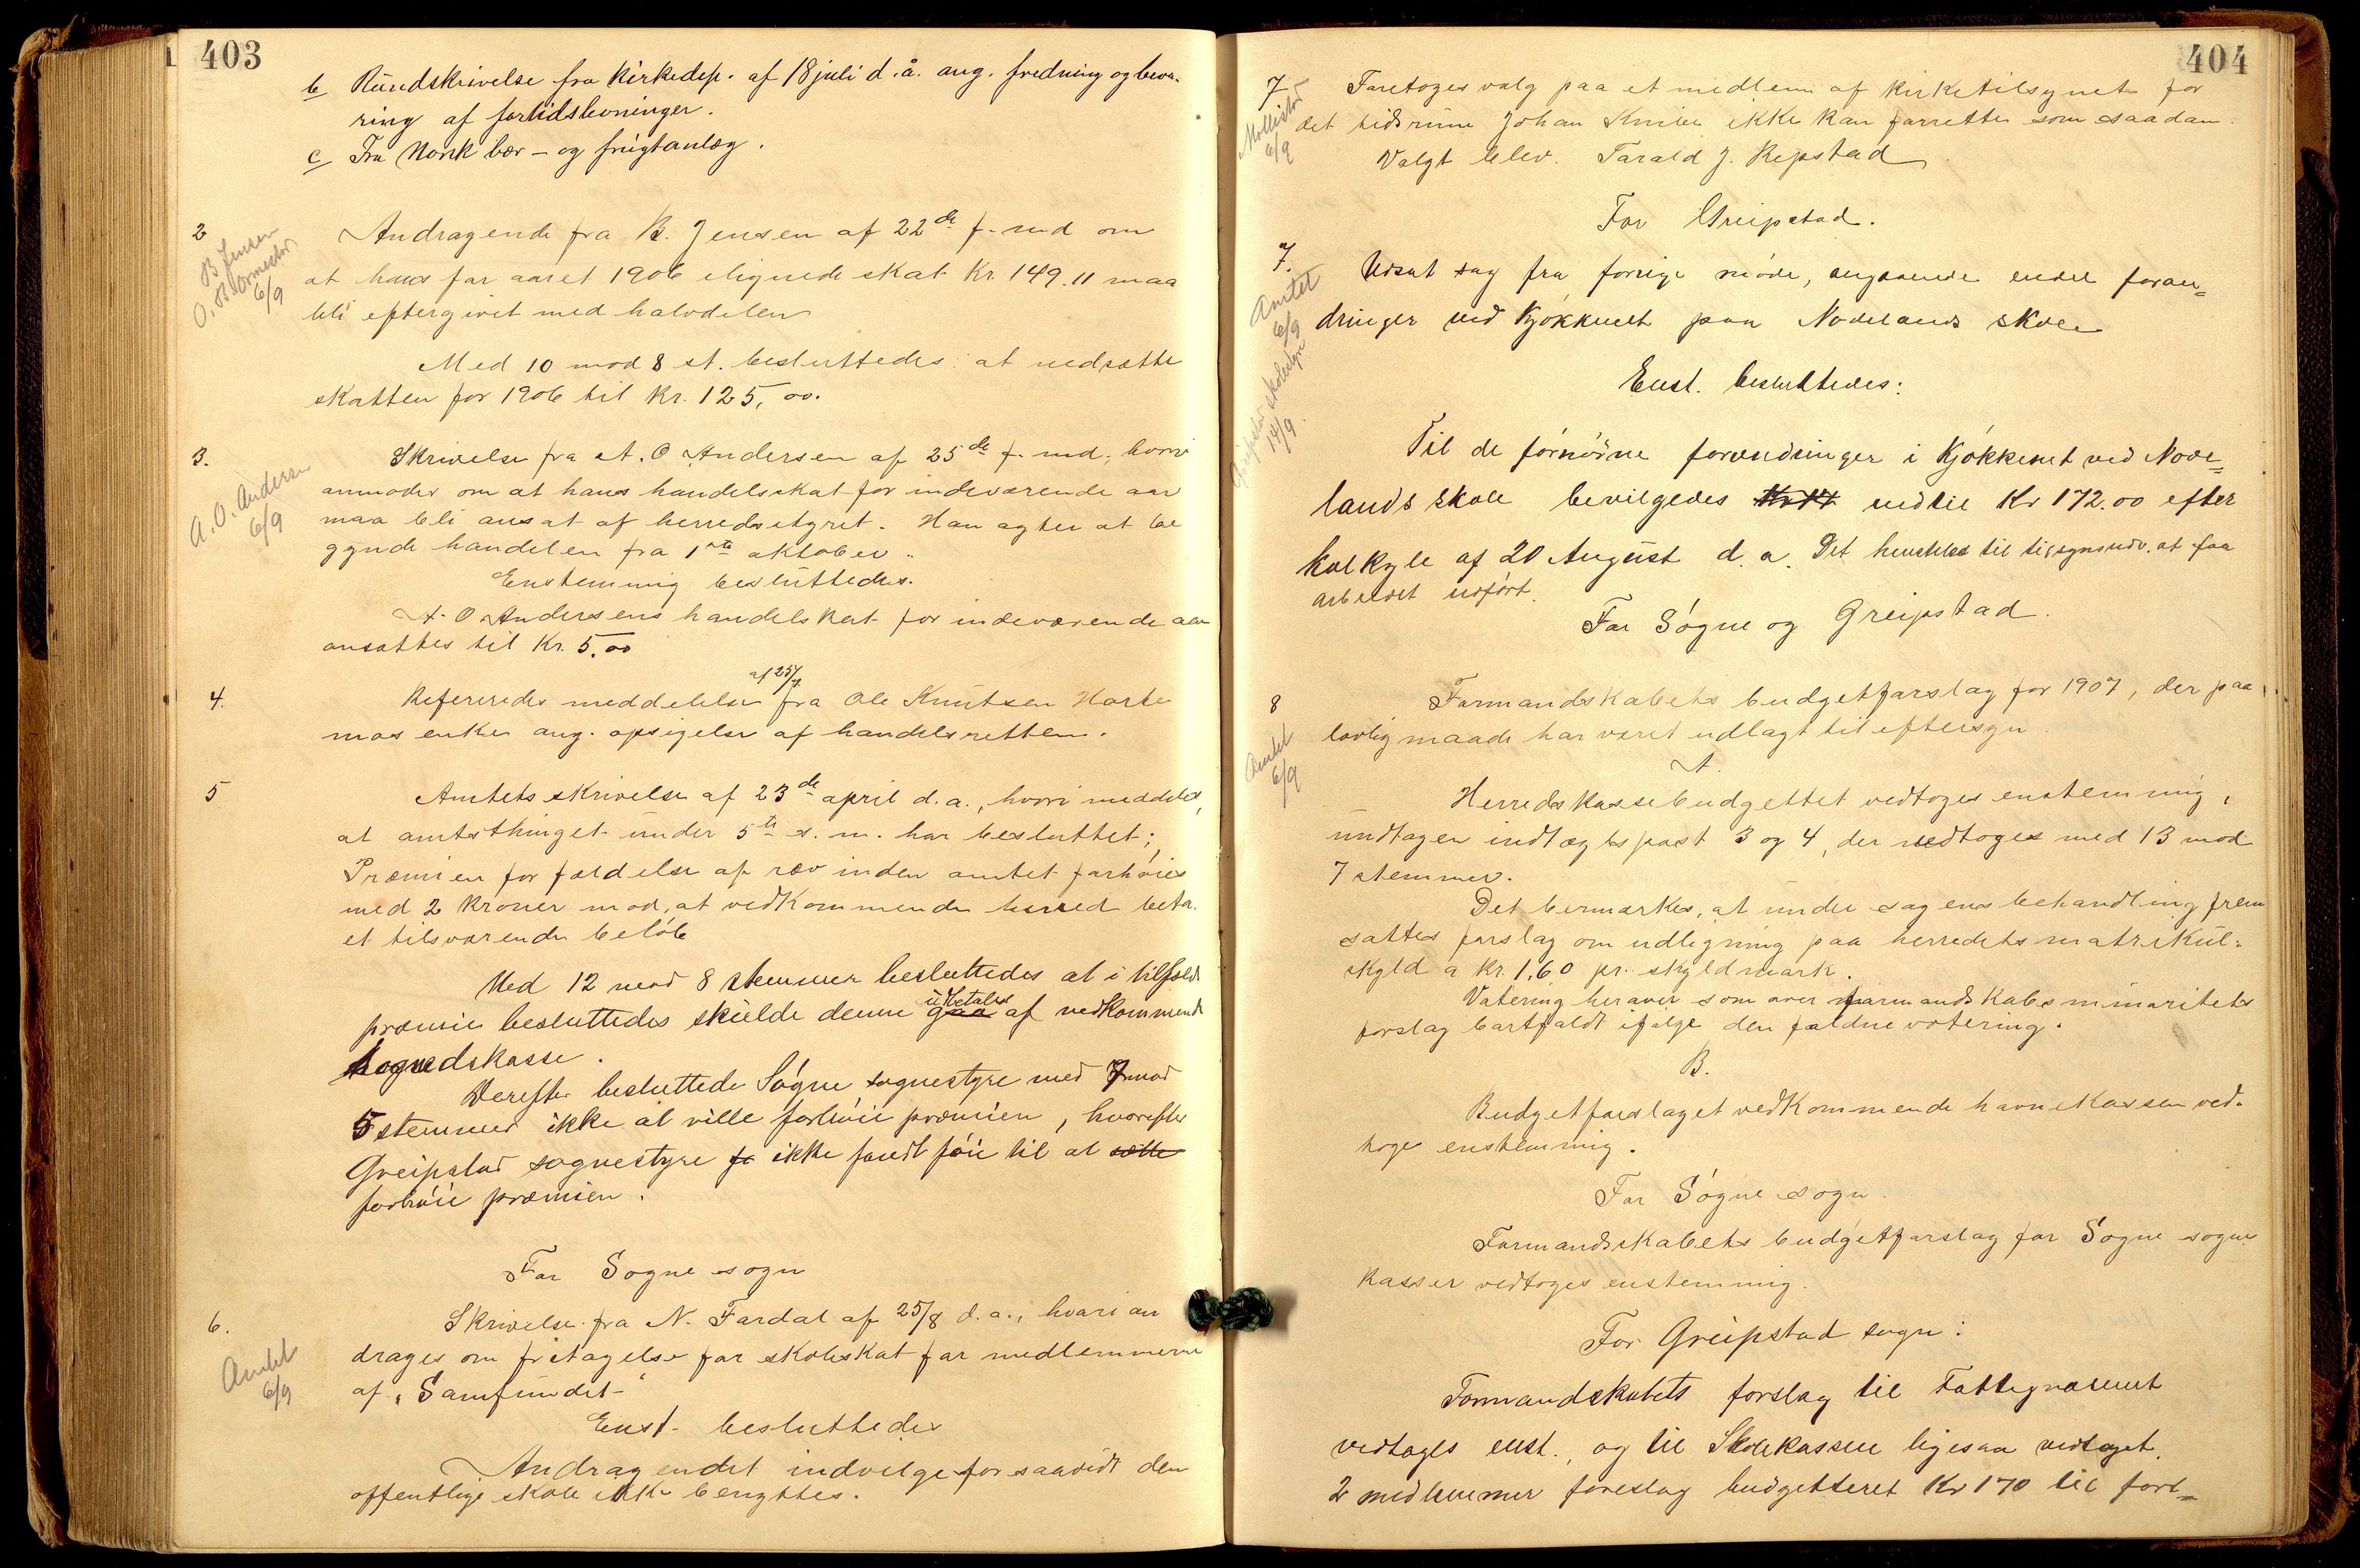 403
b Rundskrivelse fra Kirkedep. af 18 juli d.å. ang. fredning og beva-
ring af fortidslevninger.
c Fra Norsk bær- og frugtanlæg.
2
B Jensen
O. B. Ormestad
6/9
Andragende fra B. Jensen af 22de f. md om
at hans for aaret 1906 ilignede skat Kr. 149.11 maa
bli eftergivet med halvdelen
Med 10 mod 8 st. besluttedes at nedsætte
skatten for 1906 til Kr. 125,00.
3.
A. O. Andersen
6/9
Skrivelse fra A. O Andersen af 25de f. md, hvori
anmodes om at hans handelsskat for indeværende aar
maa bli ansat af herredsstyret. Han agter at be
gynde handelen fra 1ste oktober.
Enstemmig besluttedes.
A. O Andersens handelskat for indeværende aar
ansattes til Kr. 5.00
4.
af 25/7
Refereredes meddelelse fra Ole Knutsen Harke
mos enke ang. opsigelse af handelsretten.
5
Amtets skrivelse af 23de april d.a., hvori meddeles,
at amtsthinget under 5te s. m. har besluttet;
Præmien for fældelse af ræv inden amtet forhøies
med 2 kroner mod, at vedkommende herred beta.
et tilsvarende beløb
Med 12 mod 8 stemmer besluttedes at i tilfælde
præmie besluttedes skulde denne gaa udbetales af vedkommende
sognedskasse.
Derefter besluttede Søgne sognestyre med 7 mod
5 stemmer ikke at ville forhøie præmien, hvorefter
Greipstad sognestyre fo ikke fandt føie til at sætte
forhøie præmien.
For Søgne sogn
6.
Amtet
6/9
Skrivelse fra N. Fardal af 25/8 d.a., hvori an
drages om fritagelse for skoleskat for medlemmerne
af "Samfundet"
Enst. besluttedes
Andragendet indvilges forsaavidt den
offentlige skole ikke benyttes.
404
7
Mollestad
6/9
Foretoges valg paa et medlem af kirketilsynet for
det tidsrum Johan Knibe ikke kan forrette som saadan.
Valgt blev. Tarald J. Repstad
For Greipstad.
7.
Amtet
6/9
Greipstad skolestyre
14/9.
Udsat sag fra forrige møde, angaaende endel foran=
dringer ved Kjøkkenet paa Nodelands skole
Enst. besluttedes:
Til de fornødne forandringer i Kjøkkenet ved Node=
lands skole bevilgedes indtil Kr 172.00 efter
kalkyle af 20 August d. a. Det henstilles til tilsynsudv. at faa
arbeidet udført.
For Søgne og Greipstad.
8
Amtet
6/9
Formandskabets budgetforslag for 1907, der paa
lovlig maade har været udlagt til eftersyn.
A.
Herredskassebudgettet vedtoges enstemmig,
undtagen indtægtspost 3 og 4, der vedtoges med 13 mod
7 stemmer.
Det bemærkes, at under sagens behandling frem
sattes forslag om udligning paa herredets matrikul=
skyld a kr. 1.60 pr. skyldmark.
Votering herover som over formandskabsminoritets
forslag bortfaldt ifølge den faldne votering.
B.
Budgetforslaget vedkommende havnekassen ved-
toges enstemmig.
For Søgne sogn.
Formandskabets budgetforslag for Søgne sogns
kasser vedtoges enstemmig.
For Greipstad sogn:
Formandskabets forslag til Fattigvæsenet
vedtoges enst., og til Skolekassen ligesaa vedtaget.
2 medlemmer foreslog budgetteret Kr 170 til fort=